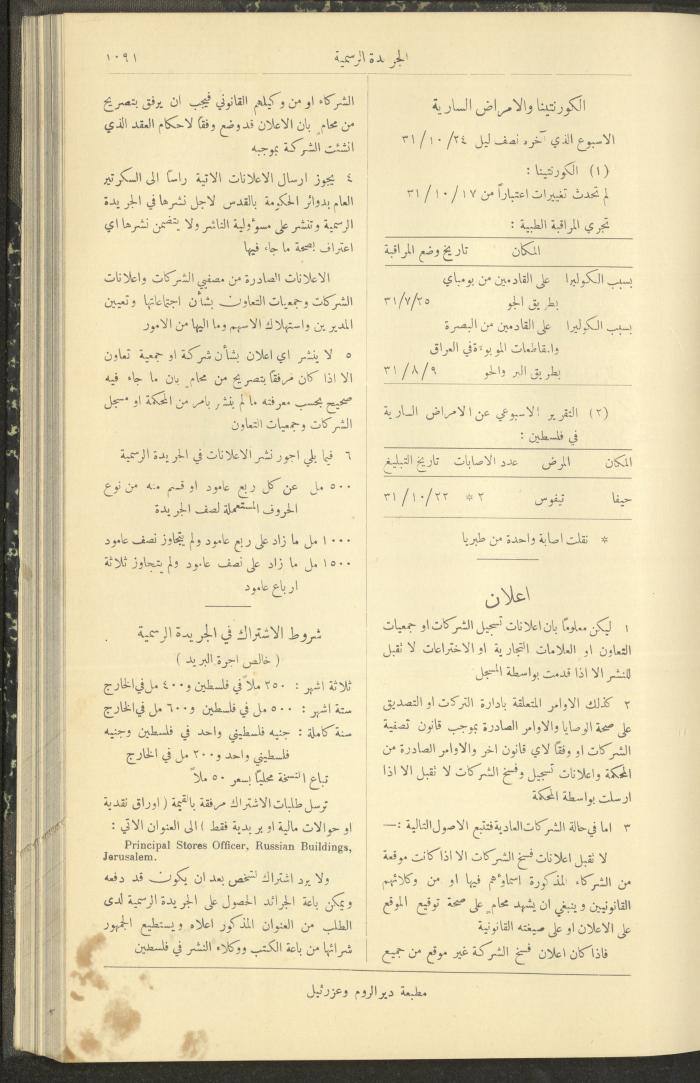 ١٠٩١
الجريدة الرسمية
الكورنتينا والامراض السارية
الاسبوع الذي آخره نصف ليل ٢٤/١٠/٣١
(١) الكورنتينا :
لم تحدث تغييرات اعتباراً من ١٧/١٠/٣١
تجري المراقبة الطبية :
المكان تاريخ وضع المراقبة
بسبب الكوليرا على القادمين من بومباي
بطريق الجو ٢٥/٧/٣١
بسبب الكوليرا على القادمين من البصرة
والمقاطعات الموبوءة في العراق
بطريق البر والجو ٩/٨/٣١
(٢) التقرير الاسبوعي عن الامراض السارية
في فلسطين :
المكان المرض عدد الاصابات تاريخ التبليغ
حيفا تيفوس ٢* ٢٢/١٠/٣١
* نقلت اصابة واحدة من طبريا
اعلان
١ ليكن معلوماً بان اعلانات تسجيل الشركات او جمعيات
التعاون او العلامات التجارية او الاختراعات لا تقبل
للنشر الا اذا قدمت بواسطة المسجل
٢ كذلك الاوامر المتعلقة بادارة التركات او التصديق
على صحة الوصايا والاوامر الصادرة بموجب قانون تصفية
الشركات او وفقاً لاي قانون اخر والاوامر الصادرة من
المحكمة واعلانات تسجيل وفسخ الشركات لا تقبل الا اذا
ارسلت بواسطة المحكمة
٣ اما في حالة الشركات العادية فتتبع الاصول التالية :—
لا تقبل اعلانات فسخ الشركات الا اذا كانت موقعة
من الشركاء المذكورة اسماؤهم فيها او من وكلائهم
القانونيين وينبغي ان يشهد محام على صحة توقيع الموقع
على الاعلان او على صيغته القانونية
فاذا كان اعلان فسخ الشركة غير موقع من جميع
الشركاء او من وكيلهم القانوني فيجب ان يرفق بتصريح
من محام بان الاعلان قد وضع وفقاً لاحكام العقد الذي
انشئت الشركة بموجبه
٤ يجوز ارسال الاعلانات الاتية راساً الى السكرتير
العام بدوائر الحكومة بالقدس لاجل نشرها في الجريدة
الرسمية وتنشر على مسؤولية الناشر ولا يتضمن نشرها اي
اعتراف بصحة ما جاء فيها
الاعلانات الصادرة من مصفيي الشركات واعلانات
الشركات وجمعيات التعاون بشأن اجتماعاتها وتعيين
المديرين واستهلاك الاسهم وما اليها من الامور
٥ لا ينشر اي اعلان بشأن شركة او جمعية تعاون
الا اذا كان مرفقاً بتصريح من محام بان ما جاء فيه
صحيح بحسب معرفته ما لم ينشر بامر من المحكمة او مسجل
الشركات وجمعيات التعاون
٦ فيما يلي اجور نشر الاعلانات في الجريدة الرسمية
٥٠٠ مل عن كل ربع عامود او قسم منه من نوع
الحروف المستعملة لصف الجريدة
١٠٠٠ مل ما زاد على ربع عامود ولم يتجاوز نصف عامود
١٥٠٠ مل ما زاد على نصف عامود ولم يتجاوز ثلاثة
ارباع عامود
شروط الاشتراك في الجريدة الرسمية
( خالص اجرة البريد )
ثلاثة اشهر : ٢٥٠ ملاً في فلسطين و٤٠٠ مل في الخارج
ستة اشهر : ٥٠٠ مل في فلسطين و٦٠٠ مل في الخارج
سنة كاملة : جنيه فلسطيني واحد في فلسطين وجنيه
فلسطيني واحد و٢٠٠ مل في الخارج
تباع النسخة محلياً بسعر ٥٠ ملاً
ترسل طلبات الاشتراك مرفقة بالقيمة ( اوراق نقدية
او حوالات مالية او بريدية فقط ) الى العنوان الاتي :
Principal Stores Officer, Russian Buildings,
Jerusalem.
ولا يرد اشتراك لشخص بعد ان يكون قد دفعه
ويمكن باعة الجرائد الحصول على الجريدة الرسمية لدى
الطلب من العنوان المذكور اعلاه ويستطيع الجمهور
شرائها من باعة الكتب ووكلاء النشر في فلسطين
مطبعة دير الروم وعزرئيل